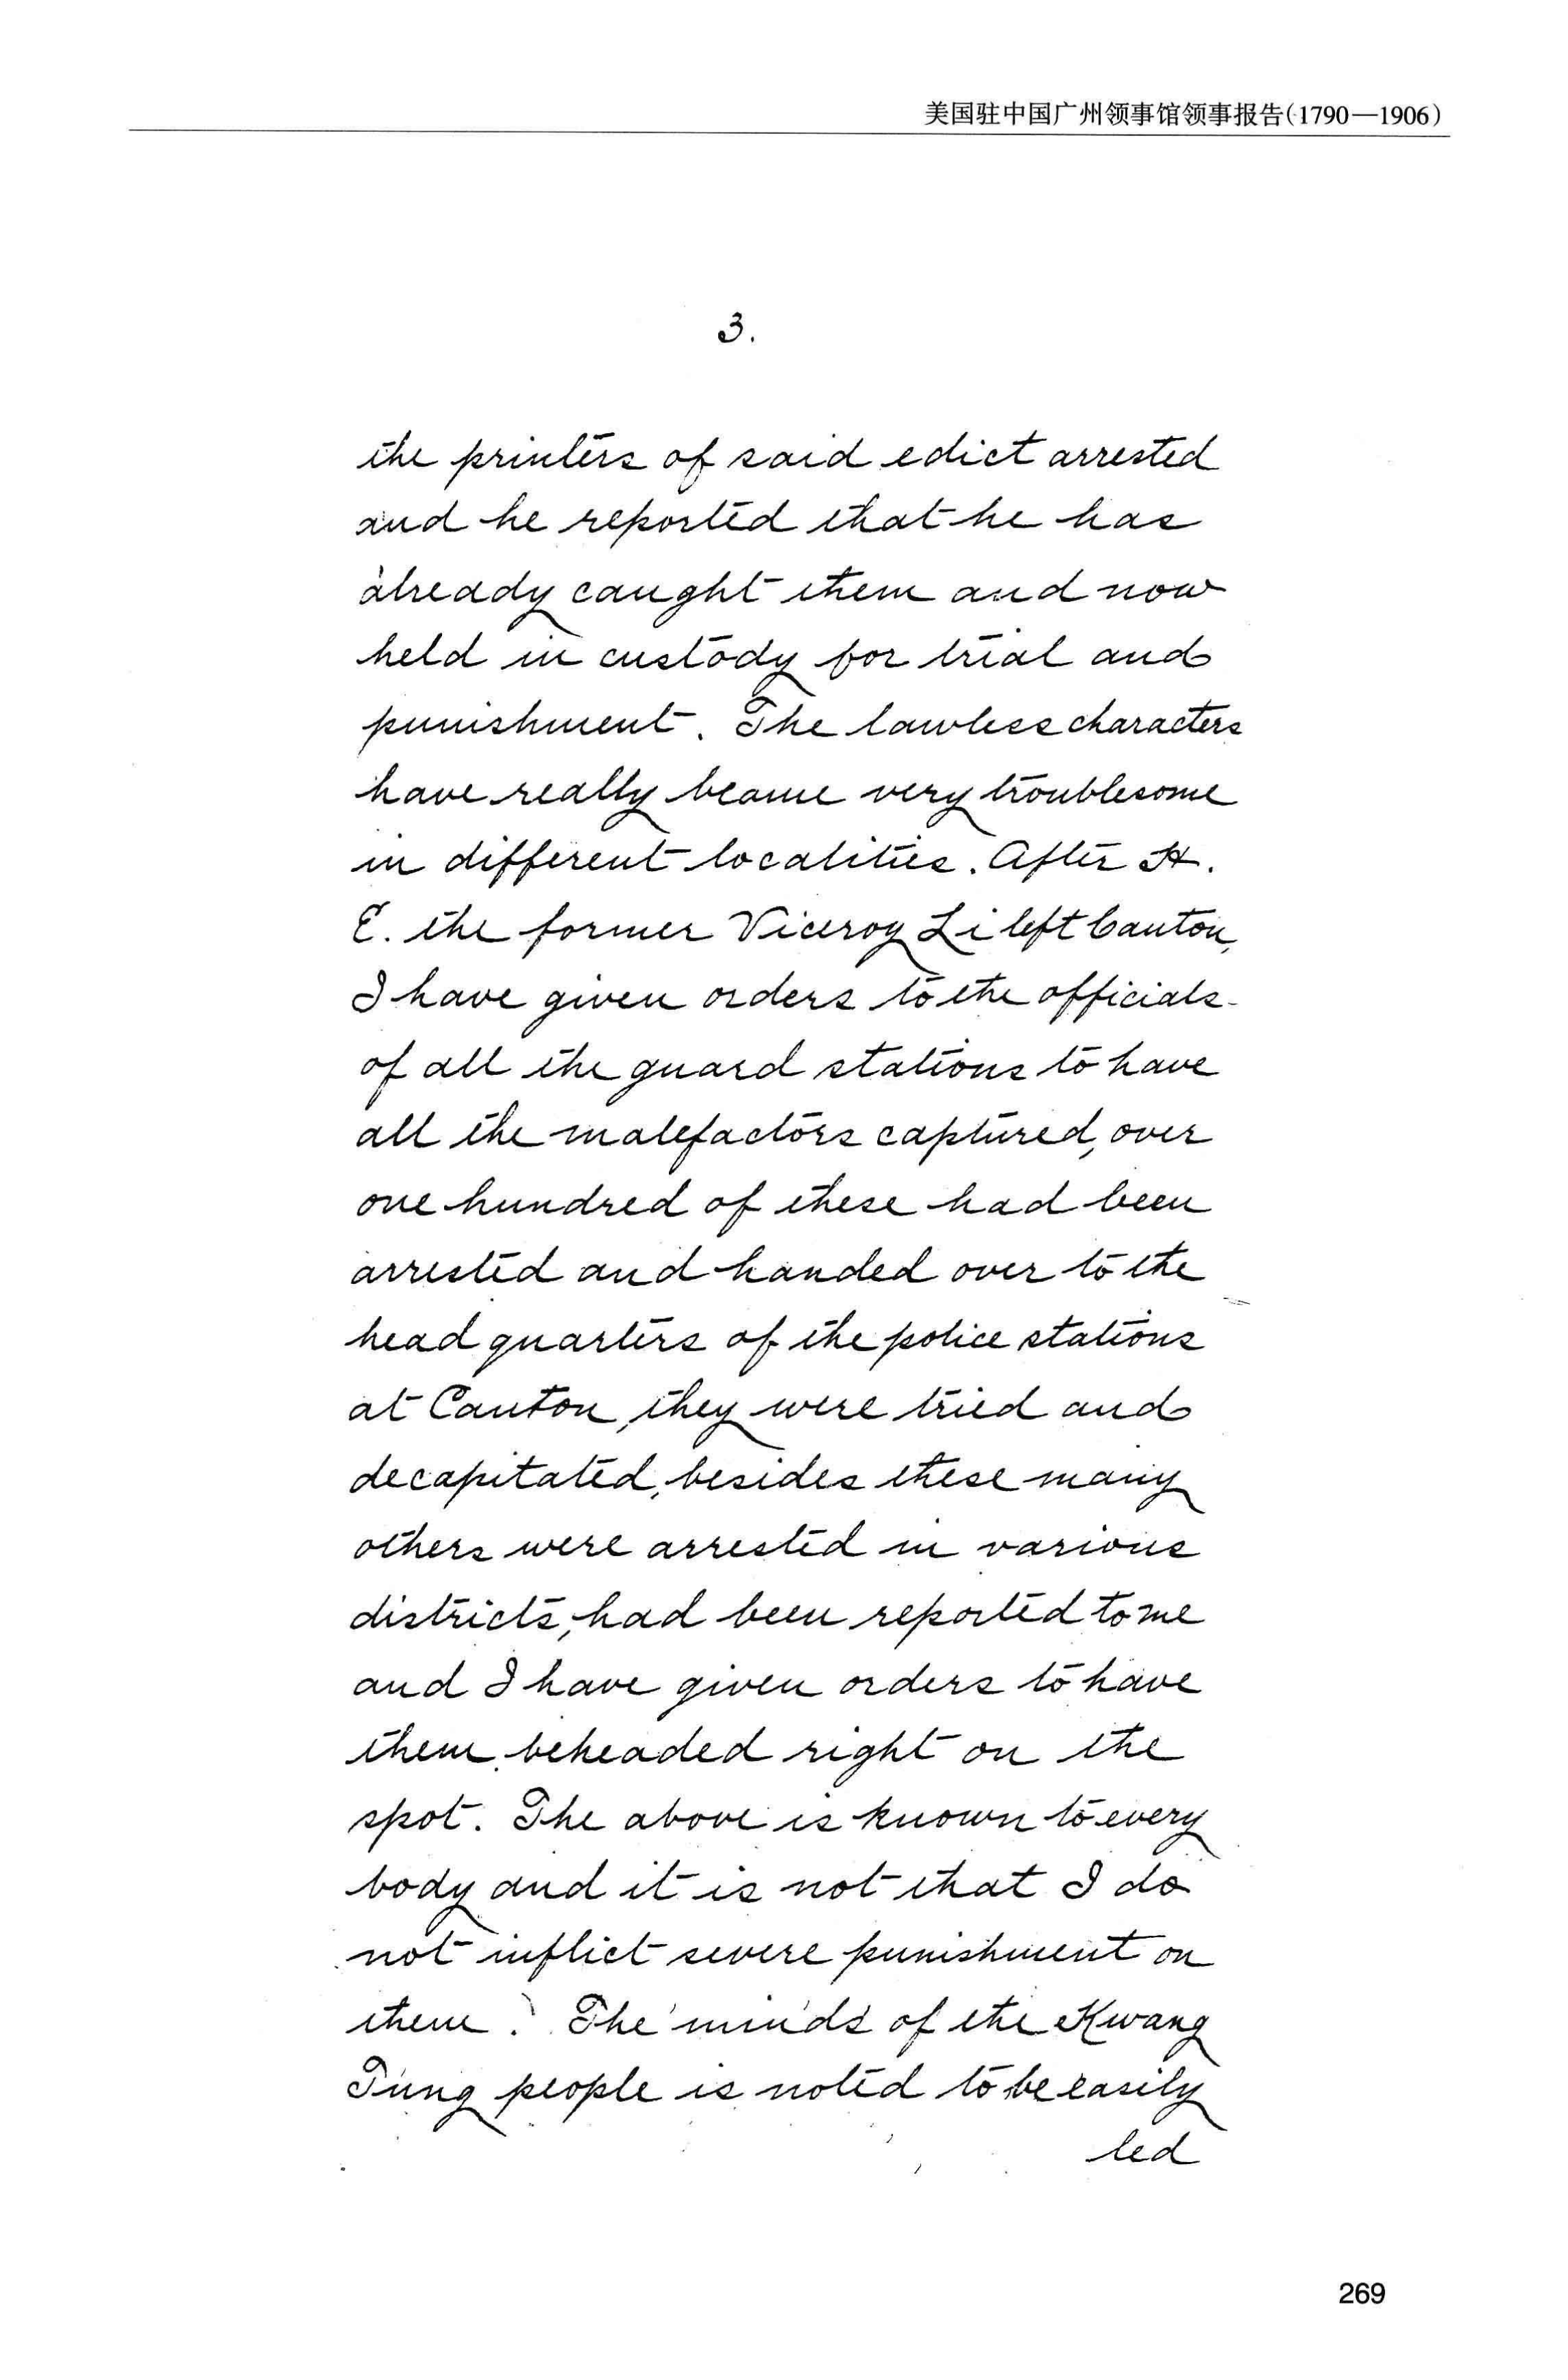 美国驻中国广州领事馆领事报告(1790—1906)
3.
the printers of said edict arrested
and he reported that he has
already caught them and now
held in custody for trial and
punishment. The lawless characters
have really became very troublesome
in different localities. After H.
E. the former Viceroy Li left Canton,
I have given orders to the officials
of all the guard stations to have
all the malefactors captured, over
one hundred of these had been
arrested and handed over to the
head quarters of the police stations
at Canton, they were tried and
decapitated, besides these many
others were arrested in various
districts, had been reported to me
and I have given orders to have
them beheaded right on the
spot. The above is known to every
body and it is not that I do
not inflict severe punishment on
them. The minds of the Kwang
Tung people is noted to be easily
led
269